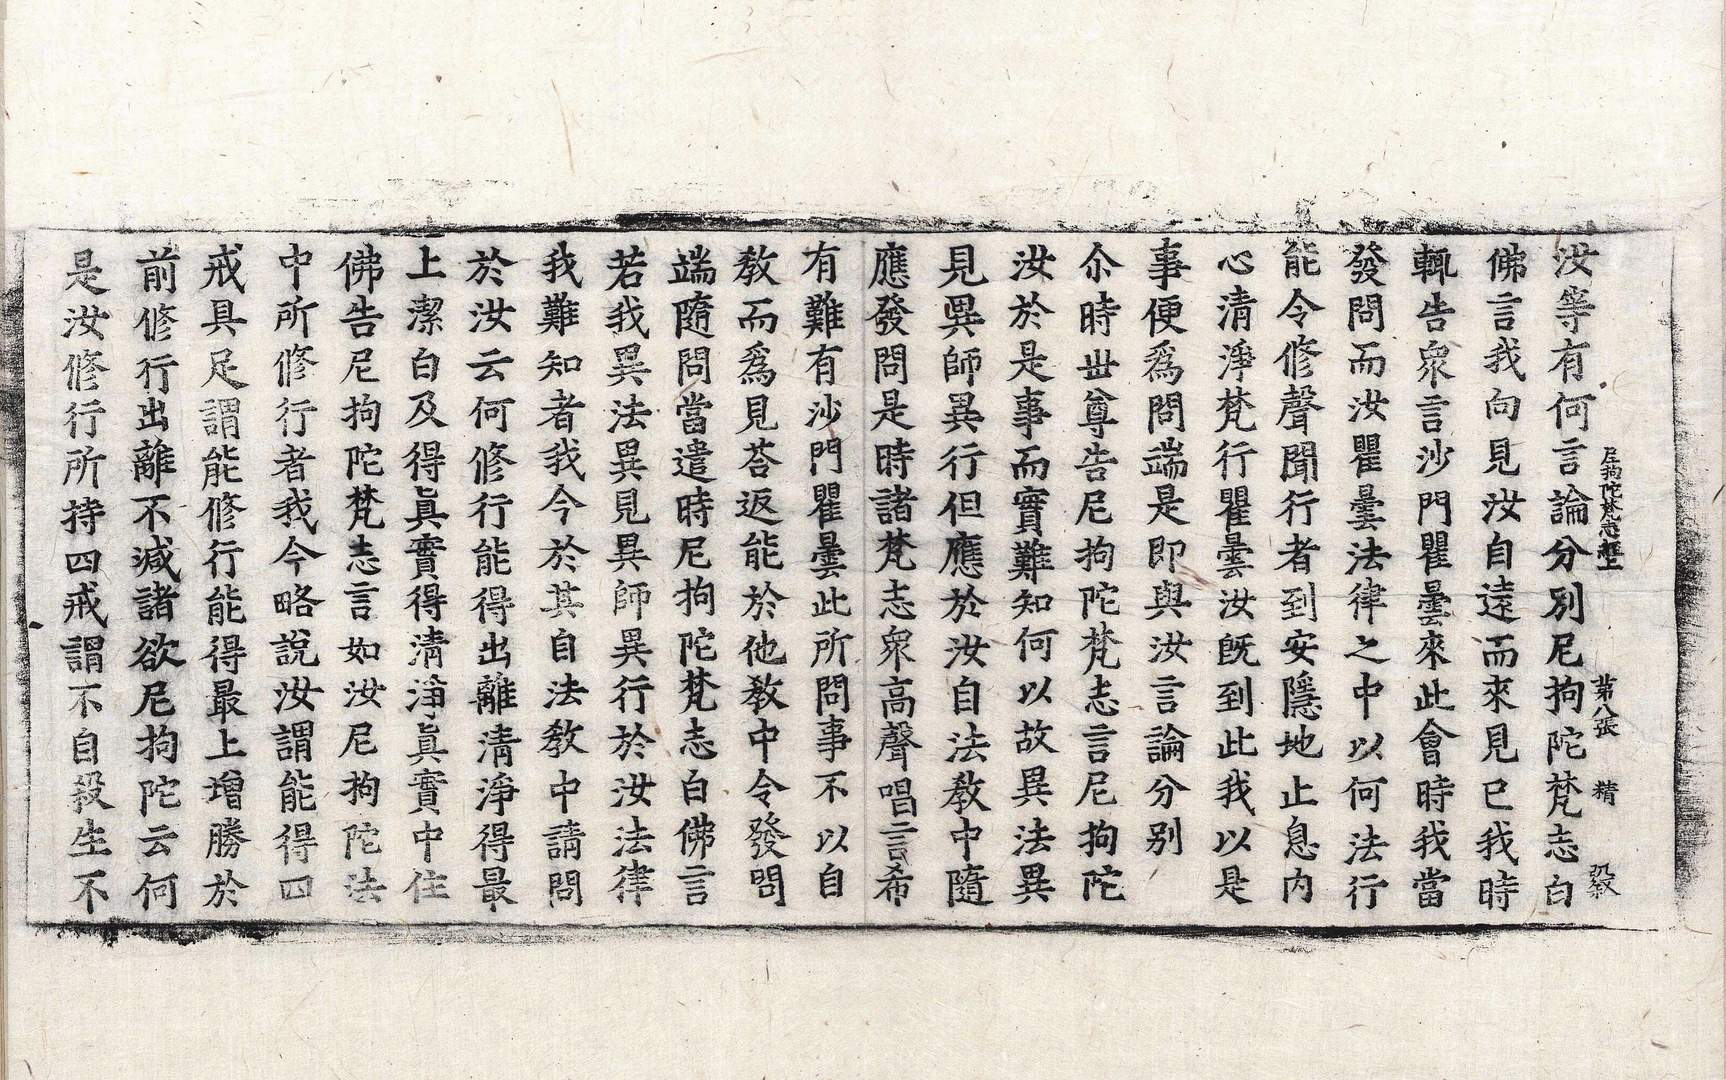 尼拘陀梵志經上 第八張 精
汝等有何言論分別尼拘陀梵志白
佛言我向見汝自遠而來見已我時
輒告衆言沙門瞿曇來此會時我當
發問而汝瞿曇法律之中以何法行
能令修聲聞行者到安隱地止息內
心清淨梵行瞿曇汝旣到此我以是
事便爲問端是卽與汝言論分別
尒時世尊告尼拘陀梵志言尼拘陀
汝於是事而實難知何以故異法異
見異師異行但應於汝自法教中隨
應發問是時諸梵志衆高聲唱言希
有難有沙門瞿曇此所問事不以自
教而爲見荅返能於他教中令發問
端隨問當遣時尼拘陀梵志白佛言
若我異法異見異師異行於汝法律
我難知者我今於其自法教中請問
於汝云何修行能得出離清淨得最
上潔白及得眞實得淸淨眞實中住
佛告尼拘陀梵志言如汝尼拘陀法
中所修行者我今略說汝謂能得四
戒具足謂能修行能得最上增勝於
前修行出離不減諸欲尼拘陀云何
是汝修行所持四戒謂不自殺生不